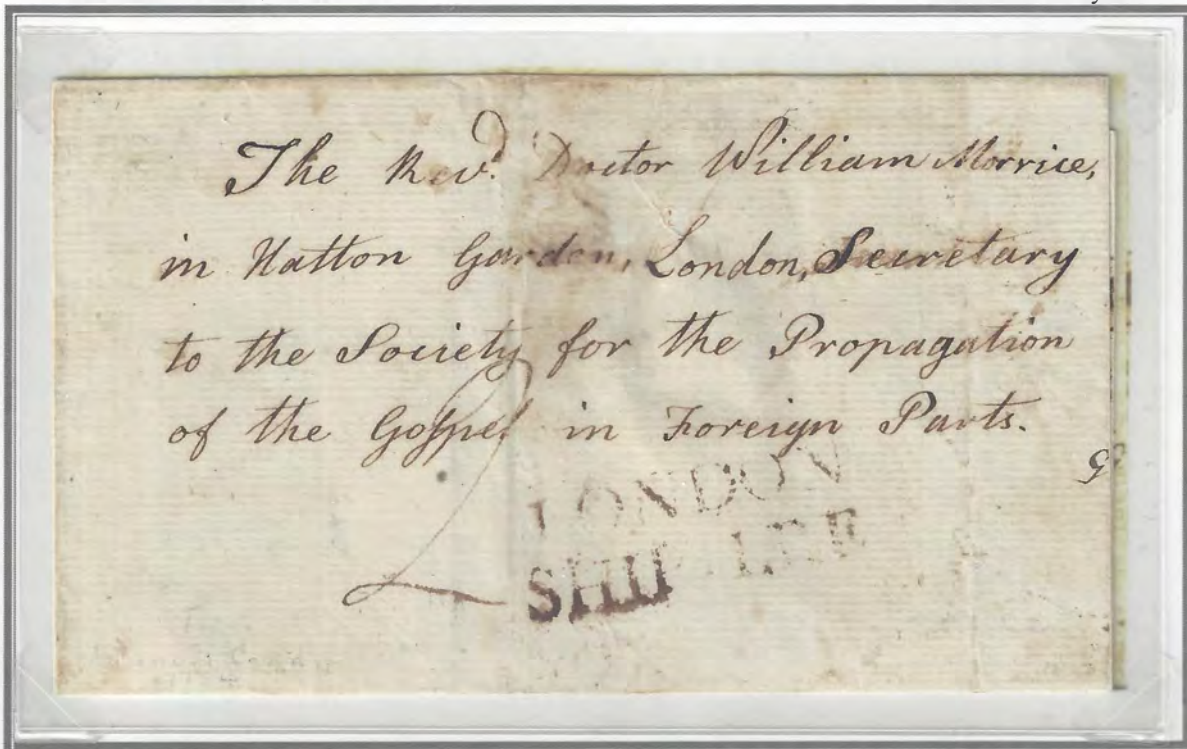 The Revd. Doctor William Morrice,
in Hatton Garden, London, Secretary
to the Society for the Propagation
of the Gospel in Foreign Parts.
2
LONDON
SHIP